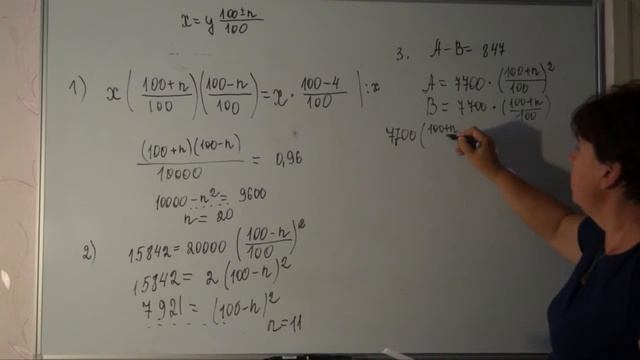 x = y (100±n)/100
1) x ((100+n)/100)((100-n)/100) = x · (100-4)/100 | :x
((100+n)(100-n))/10000 = 0,96
10000 - n² = 9600
n = 20
2) 15842 = 20000 ((100-n)/100)²
15842 = 2 (100-n)²
7921 = (100-n)²
n = 11
3. A - B = 847
A = 7700 · ((100+n)/100)²
B = 7700 · ((100+n)/100)
7700 (100+n